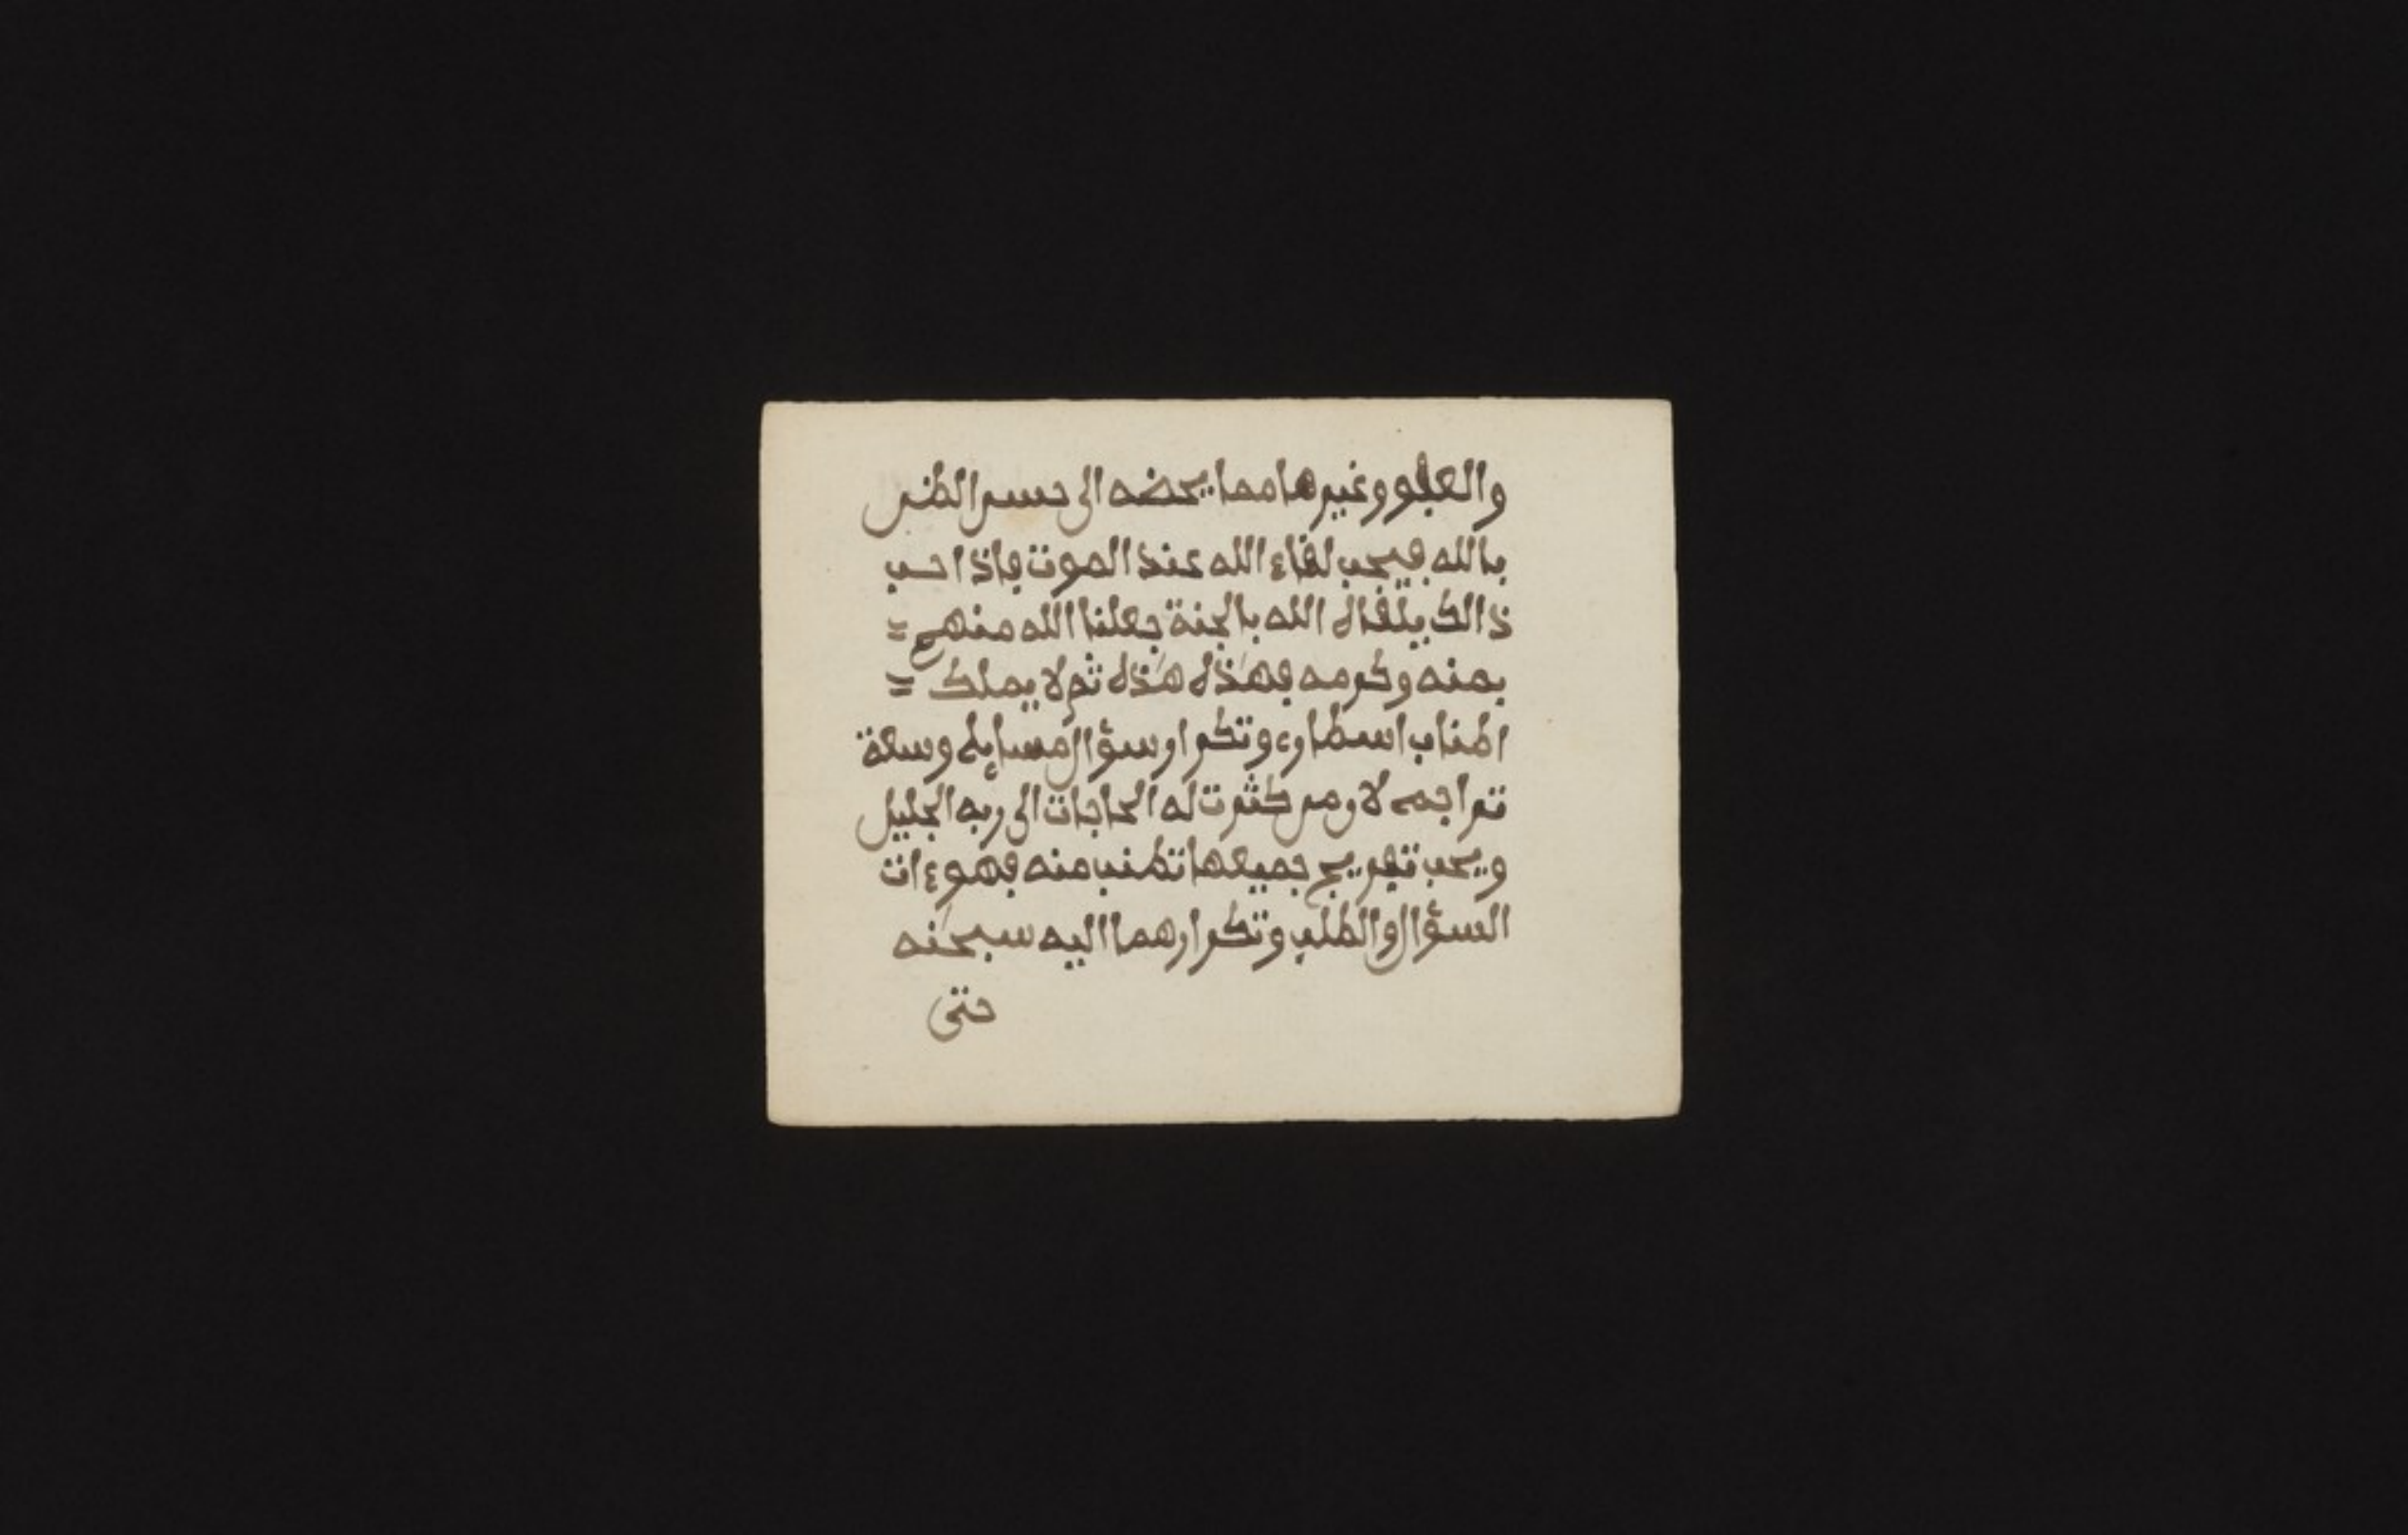 والعفو وغيرها مما يحضه الى حسن الظن
بالله فيحب لقاء الله عند الموت فاذا احب
ذالك يلقاه الله بالجنة جعلنا الله منهم =
بمنه وكرمه فهذا هذا ثم لا يملك =
اطناب اسطاره وتكرار سؤال مسايله وسعة
تراجمه لان من كثرت له الحاجات الى ربه الجليل
ويحب تفريج جميعها تطنب منه فهوءات
السؤال والطلب وتكرارهما اليه سبحنه
حتى